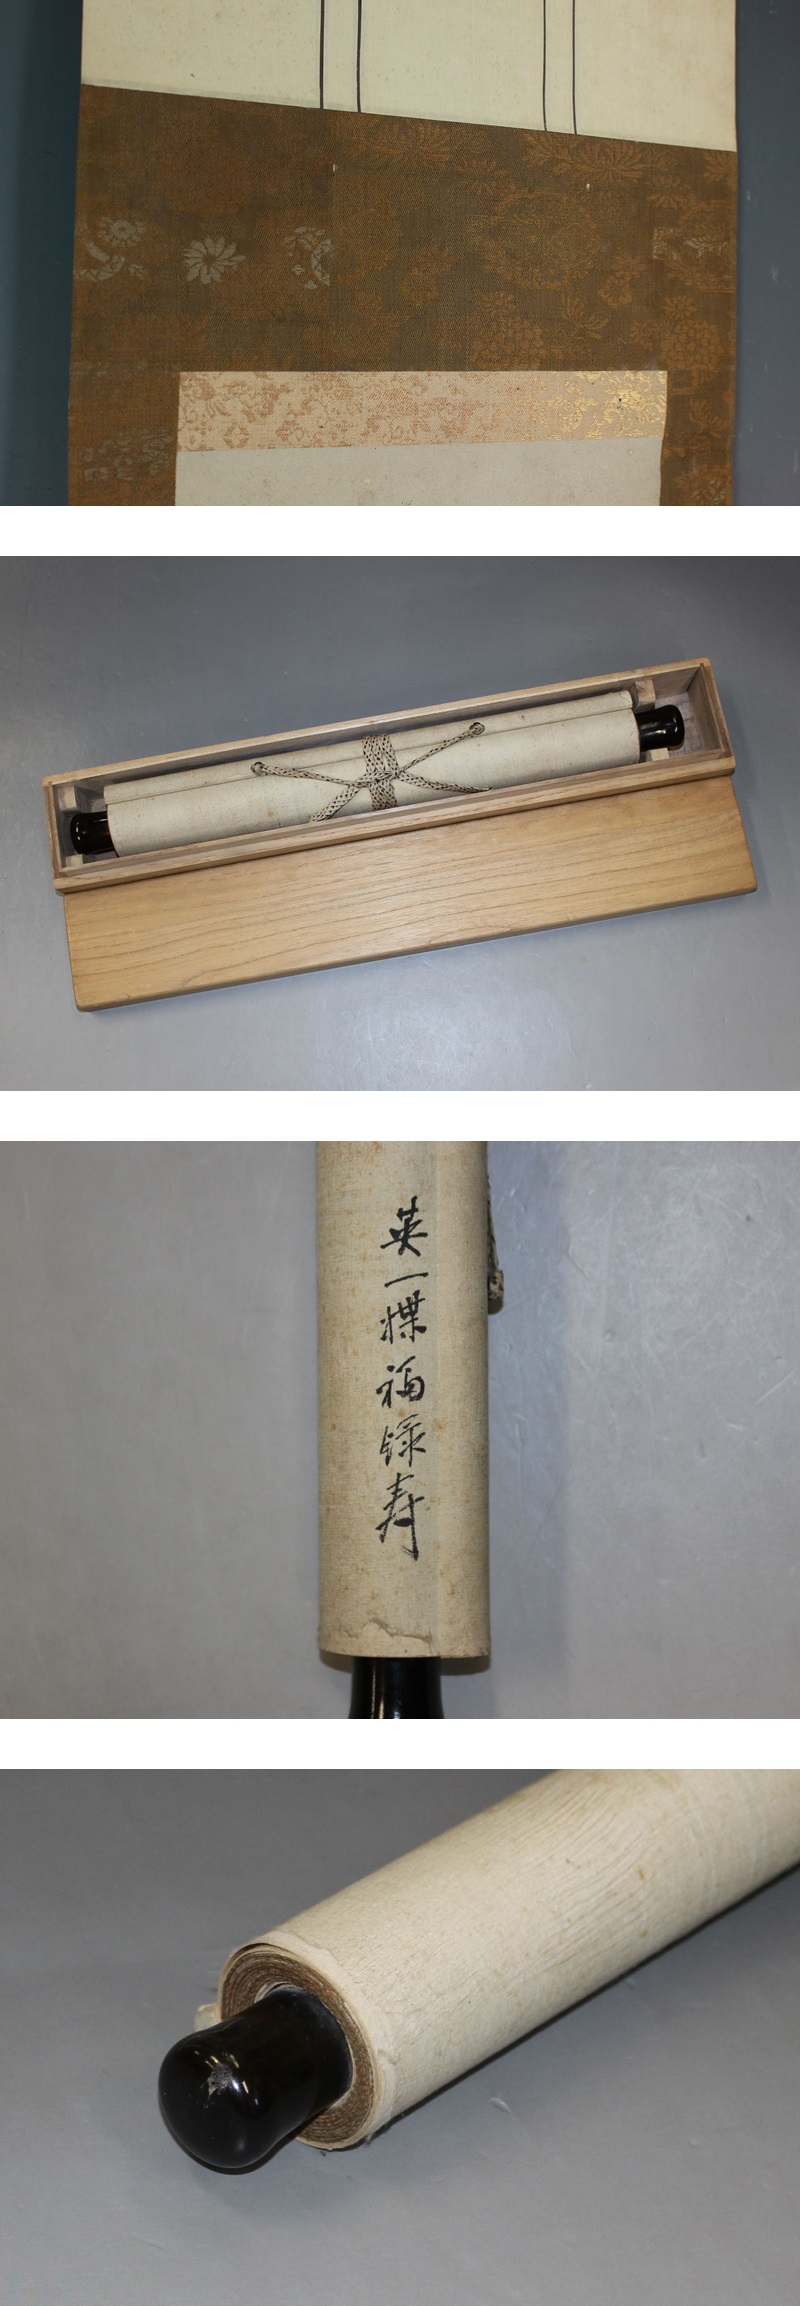 英一蝶福録寿